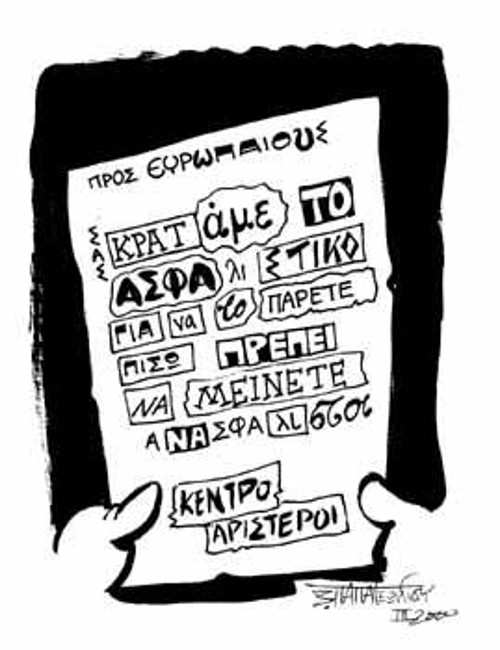 ΠΡΟΣ ΕΥΡΩΠΑΙΟΥΣ
ΣΑΣ ΚΡΑΤάμε ΤΟ
ΑΣΦΑλιΣΤΙΚΟ
ΓΙΑ να το ΠΑΡΕΤΕ
ΠΙΣΩ ΠΡΕΠΕΙ
ΝΑ ΜΕΙΝΕΤΕ
ΑΝΑΣΦΑλιστοι
ΚΕΝΤΡΟ
ΑΡΙΣΤΕΡΟΙ
III 2000